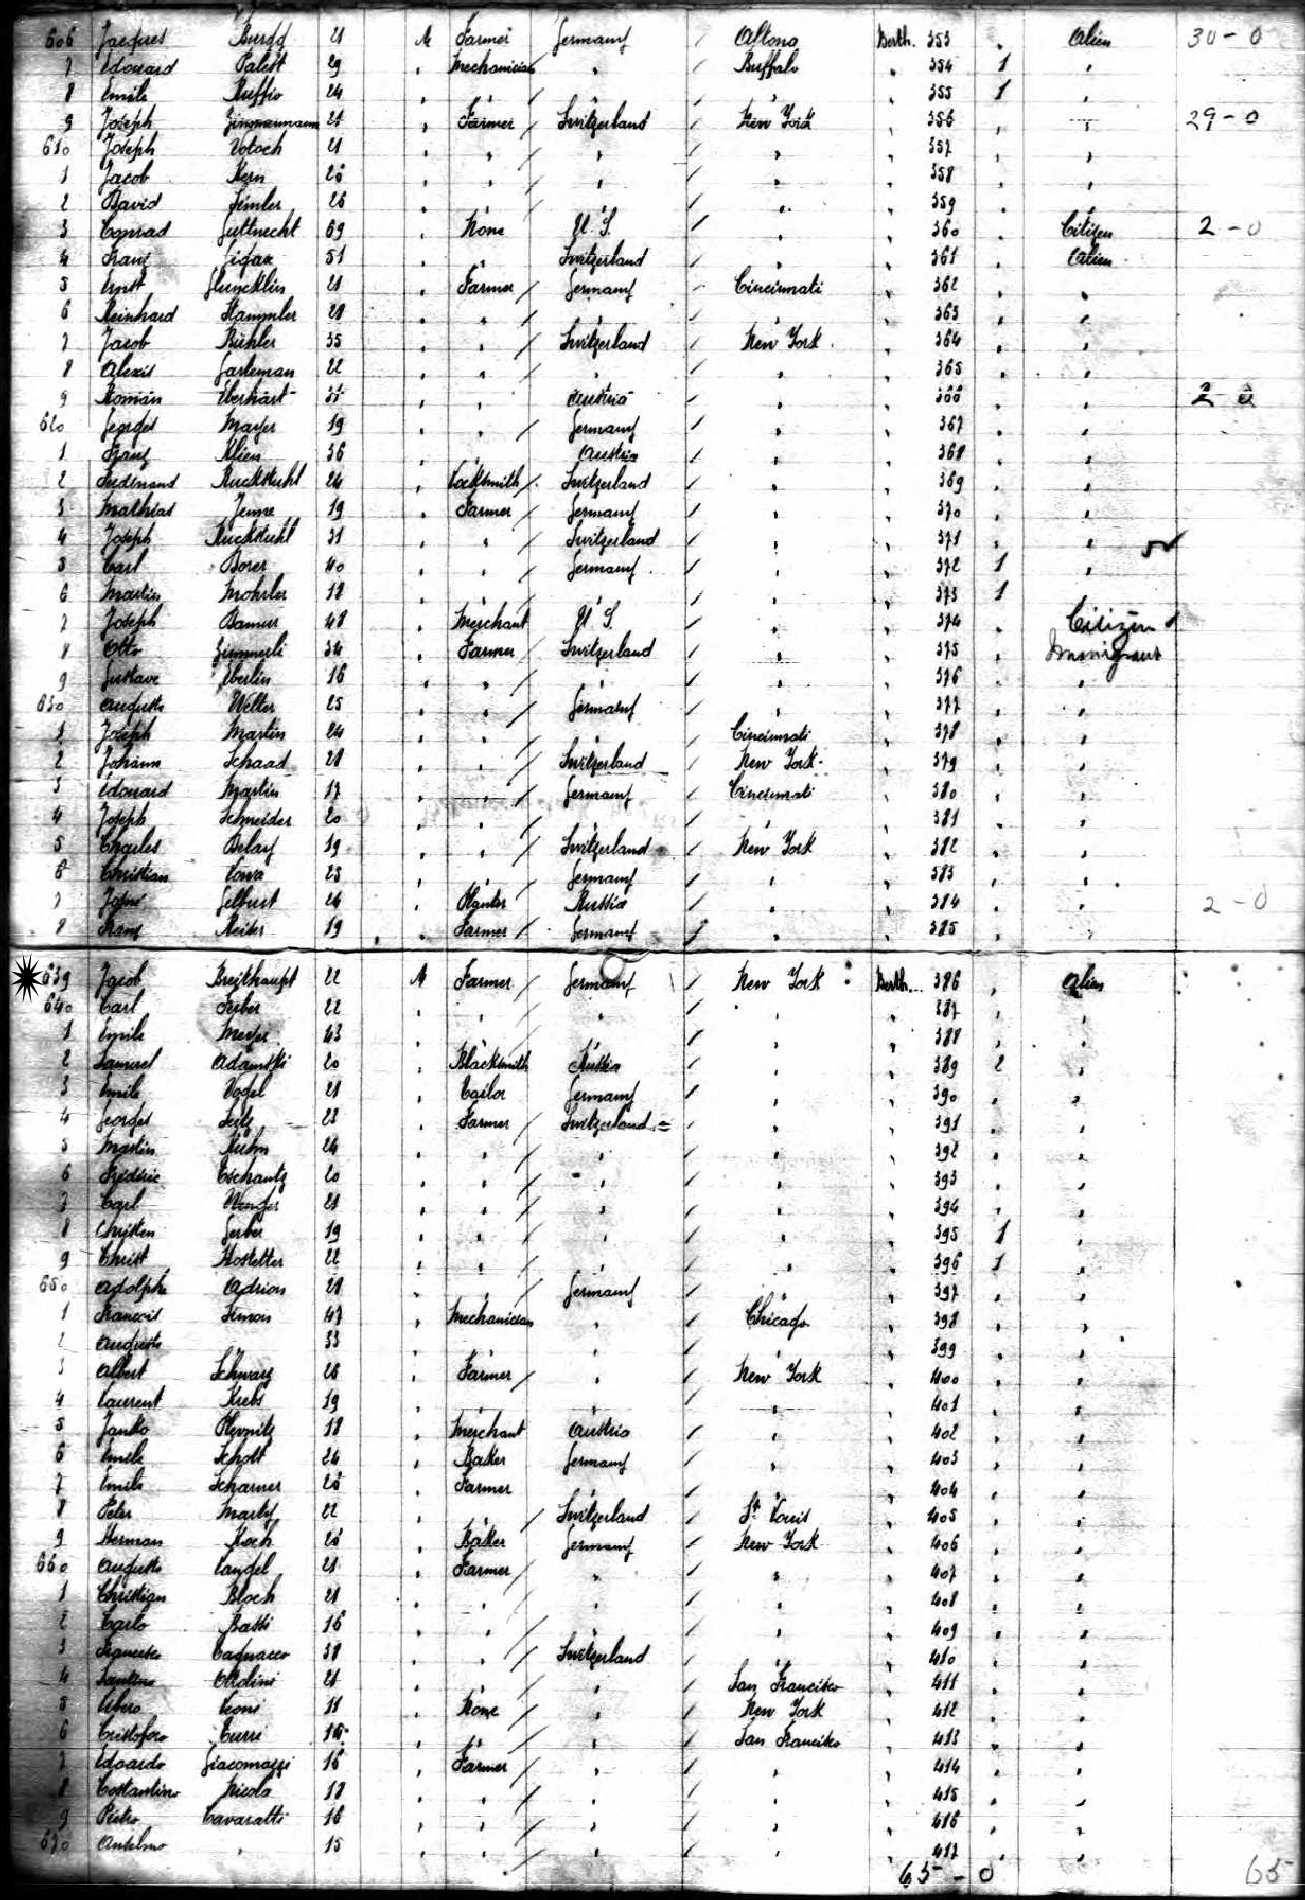 606 Jacques Burgy 21 M Farmer Germany Altona Berth. 353 Alien 30-0
7 Edouard 29 Mechanician " Buffalo " 354 1 "
8 Emile Ruffio 24 " " " " " 355 1 "
9 Joseph Zimmermann 25 " Farmer Switzerland New York " 356 " " 29-0
610 Joseph 21 " " " " " 357 " "
1 Jacob Kern 25 " " " " " 358 " "
2 David 26 " " " " " 359 " "
3 Conrad Gultknecht 69 " None U. S. " " 360 " Citizen 2-0
4 Franz 51 " " Switzerland " " 361 " Alien
5 Ernst 21 " Farmer Germany Cincinnati " 362 " "
6 Reinhard Hammler 28 " " " " " 363 " "
7 Jacob Bühler 35 " " Switzerland New York " 364 " "
8 Alexis Garteman 22 " " " " " 365 " "
9 Roman Eberhart 35 " " Austria " " 366 " "
620 Georges Mayer 19 " " Germany " " 367 " "
1 Franz Klien 36 " " Austria " " 368 " "
2 Ferdinand Ruckstuhl 24 " Locksmith Switzerland " " 369 " "
3 Mathias Jenne 19 " Farmer Germany " " 370 " "
4 Joseph Ruckstuhl 31 " " Switzerland " " 371 " "
5 Carl Borer 40 " " Germany " " 372 1 "
6 Martin Mohrler 18 " " " " " 373 1 "
7 Joseph 48 " Merchant U. S. " " 374 " Citizen
8 Otto Zimmerli 34 " Farmer Switzerland " " 375 " Immigrant
9 Gustave Eberlin 16 " " " " " 376 " "
630 Auguste Welter 25 " " Germany " " 377 " "
1 Joseph Martin 24 " " " Cincinnati " 378 " "
2 Johann Schaad 28 " " Switzerland New York " 379 " "
3 Edouard Martin 17 " " Germany Cincinnati " 380 " "
4 Joseph Schneider 20 " " " " " 381 " "
5 Charles Belay 19 " " Switzerland New York " 382 " "
6 Christian 23 " " Germany " " 383 " "
7 24 " Planter Russia " " 384 " " 2-0
8 Franz Reiter 19 " Farmer Germany " " 385 " "
639 Jacob Breithaupt 22 M Farmer Germany New York Berth. 386 " Alien
640 Carl Ferber 22 " " " " 387 " "
1 Emile Meyer 43 " " " " 388 " "
2 Samuel Adamski 20 " Blacksmith Russia " " 389 2 "
3 Emile Vogel 21 " Tailor Germany " " 390 " "
4 Georges Seitz 22 " Farmer Switzerland " " 391 " "
5 Martin Kuhn 24 " " " " " 392 " "
6 Frédéric Tschantz 20 " " " " " 393 " "
7 Carl Wenger 21 " " " " " 394 " "
8 Christen Gerber 19 " " " " " 395 1 "
9 Christ Hostettler 22 " " " " " 396 1 "
650 Adolphe Adrion 28 " " Germany " " 397 " "
1 Francois Simon 47 " Mechanician " Chicago " 398 " "
2 Auguste 33 " " " " " 399 " "
3 Albert Schwarz 26 " Farmer " New York " 400 " "
4 Laurent Krebs 19 " " " " " 401 " "
5 Janko 18 " Merchant Austria " " 402 " "
6 Emile Schott 24 " Baker Germany " " 403 " "
7 Emile Scharrer 25 " Farmer " " " 404 " "
8 Peter Marty 22 " " Switzerland St. Louis " 405 " "
9 Herman Koch 25 " Baker Germany New York " 406 " "
660 Auguste Langel 21 " Farmer " " " 407 " "
1 Christian Bloch 28 " " " " " 408 " "
2 Carlo Bassi 16 " " " " " 409 " "
3 Francesco 38 " " Switzerland " " 410 " "
4 21 " " " San Francisco " 411 " "
5 Leoni 18 " None " New York " 412 " "
6 Cristoforo Turri 14 " " " San Francisco " 413 " "
7 Edoardo Giacomazzi 16 " Farmer " " " 414 " "
8 Costantino Nicola 18 " " " " " 415 " "
9 Pietro Cavaratti 16 " " " " " 416 " "
670 Anselmo " 15 " " " " " 417 " "
65-0 65